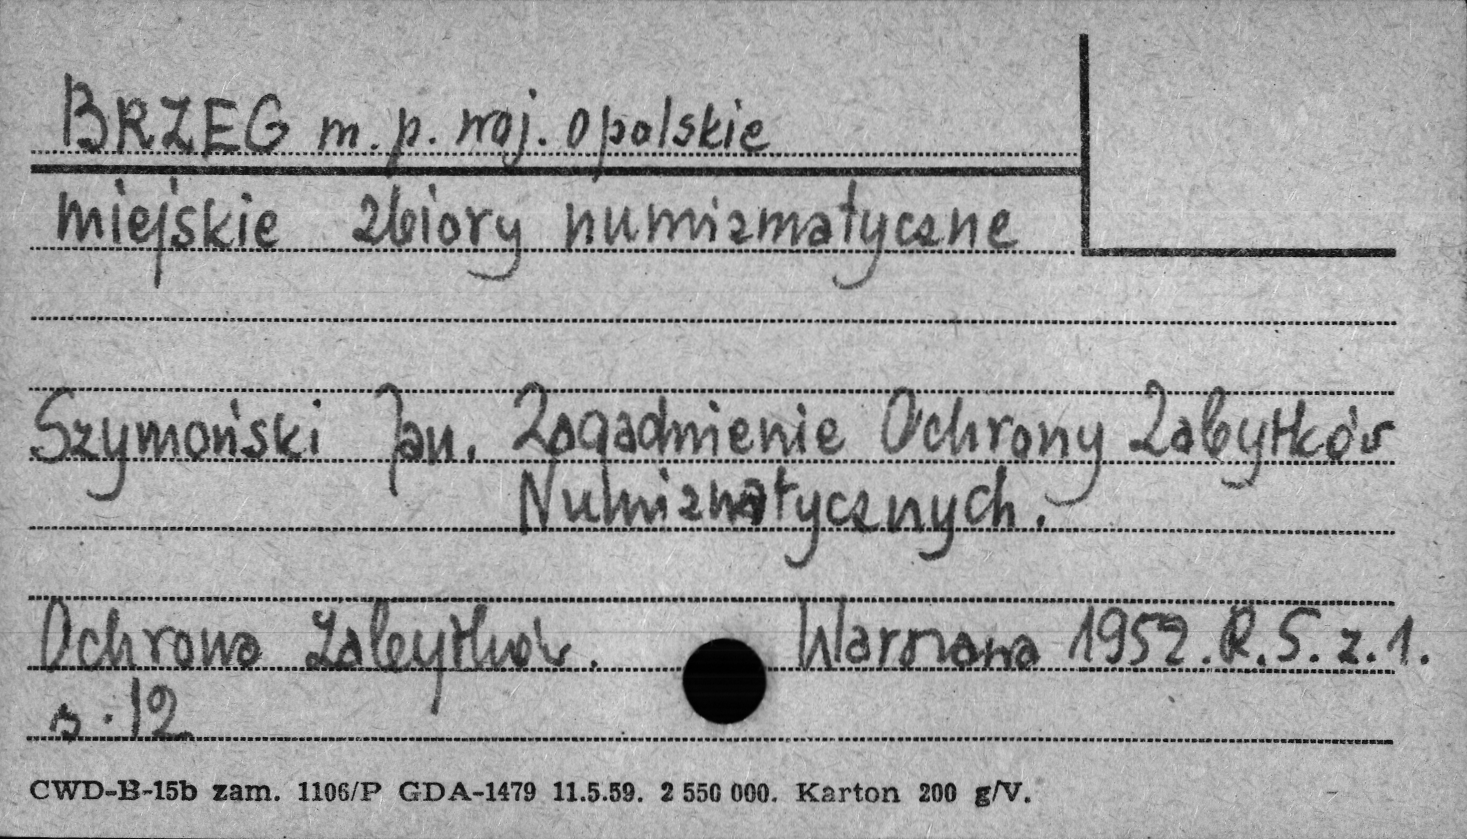 BRZEG m. p. woj. opolskie
miejskie zbiory numizmatyczne
Szymański Jan. Zagadnienie Ochrony Zabytków
Numizmatycznych.
Ochrona Zabytków. Warszawa 1952. R. 5. z. 1.
s. 12
CWD-B-15b zam. 1106/P GDA-1479 11.5.59. 2 550 000. Karton 200 g/V.